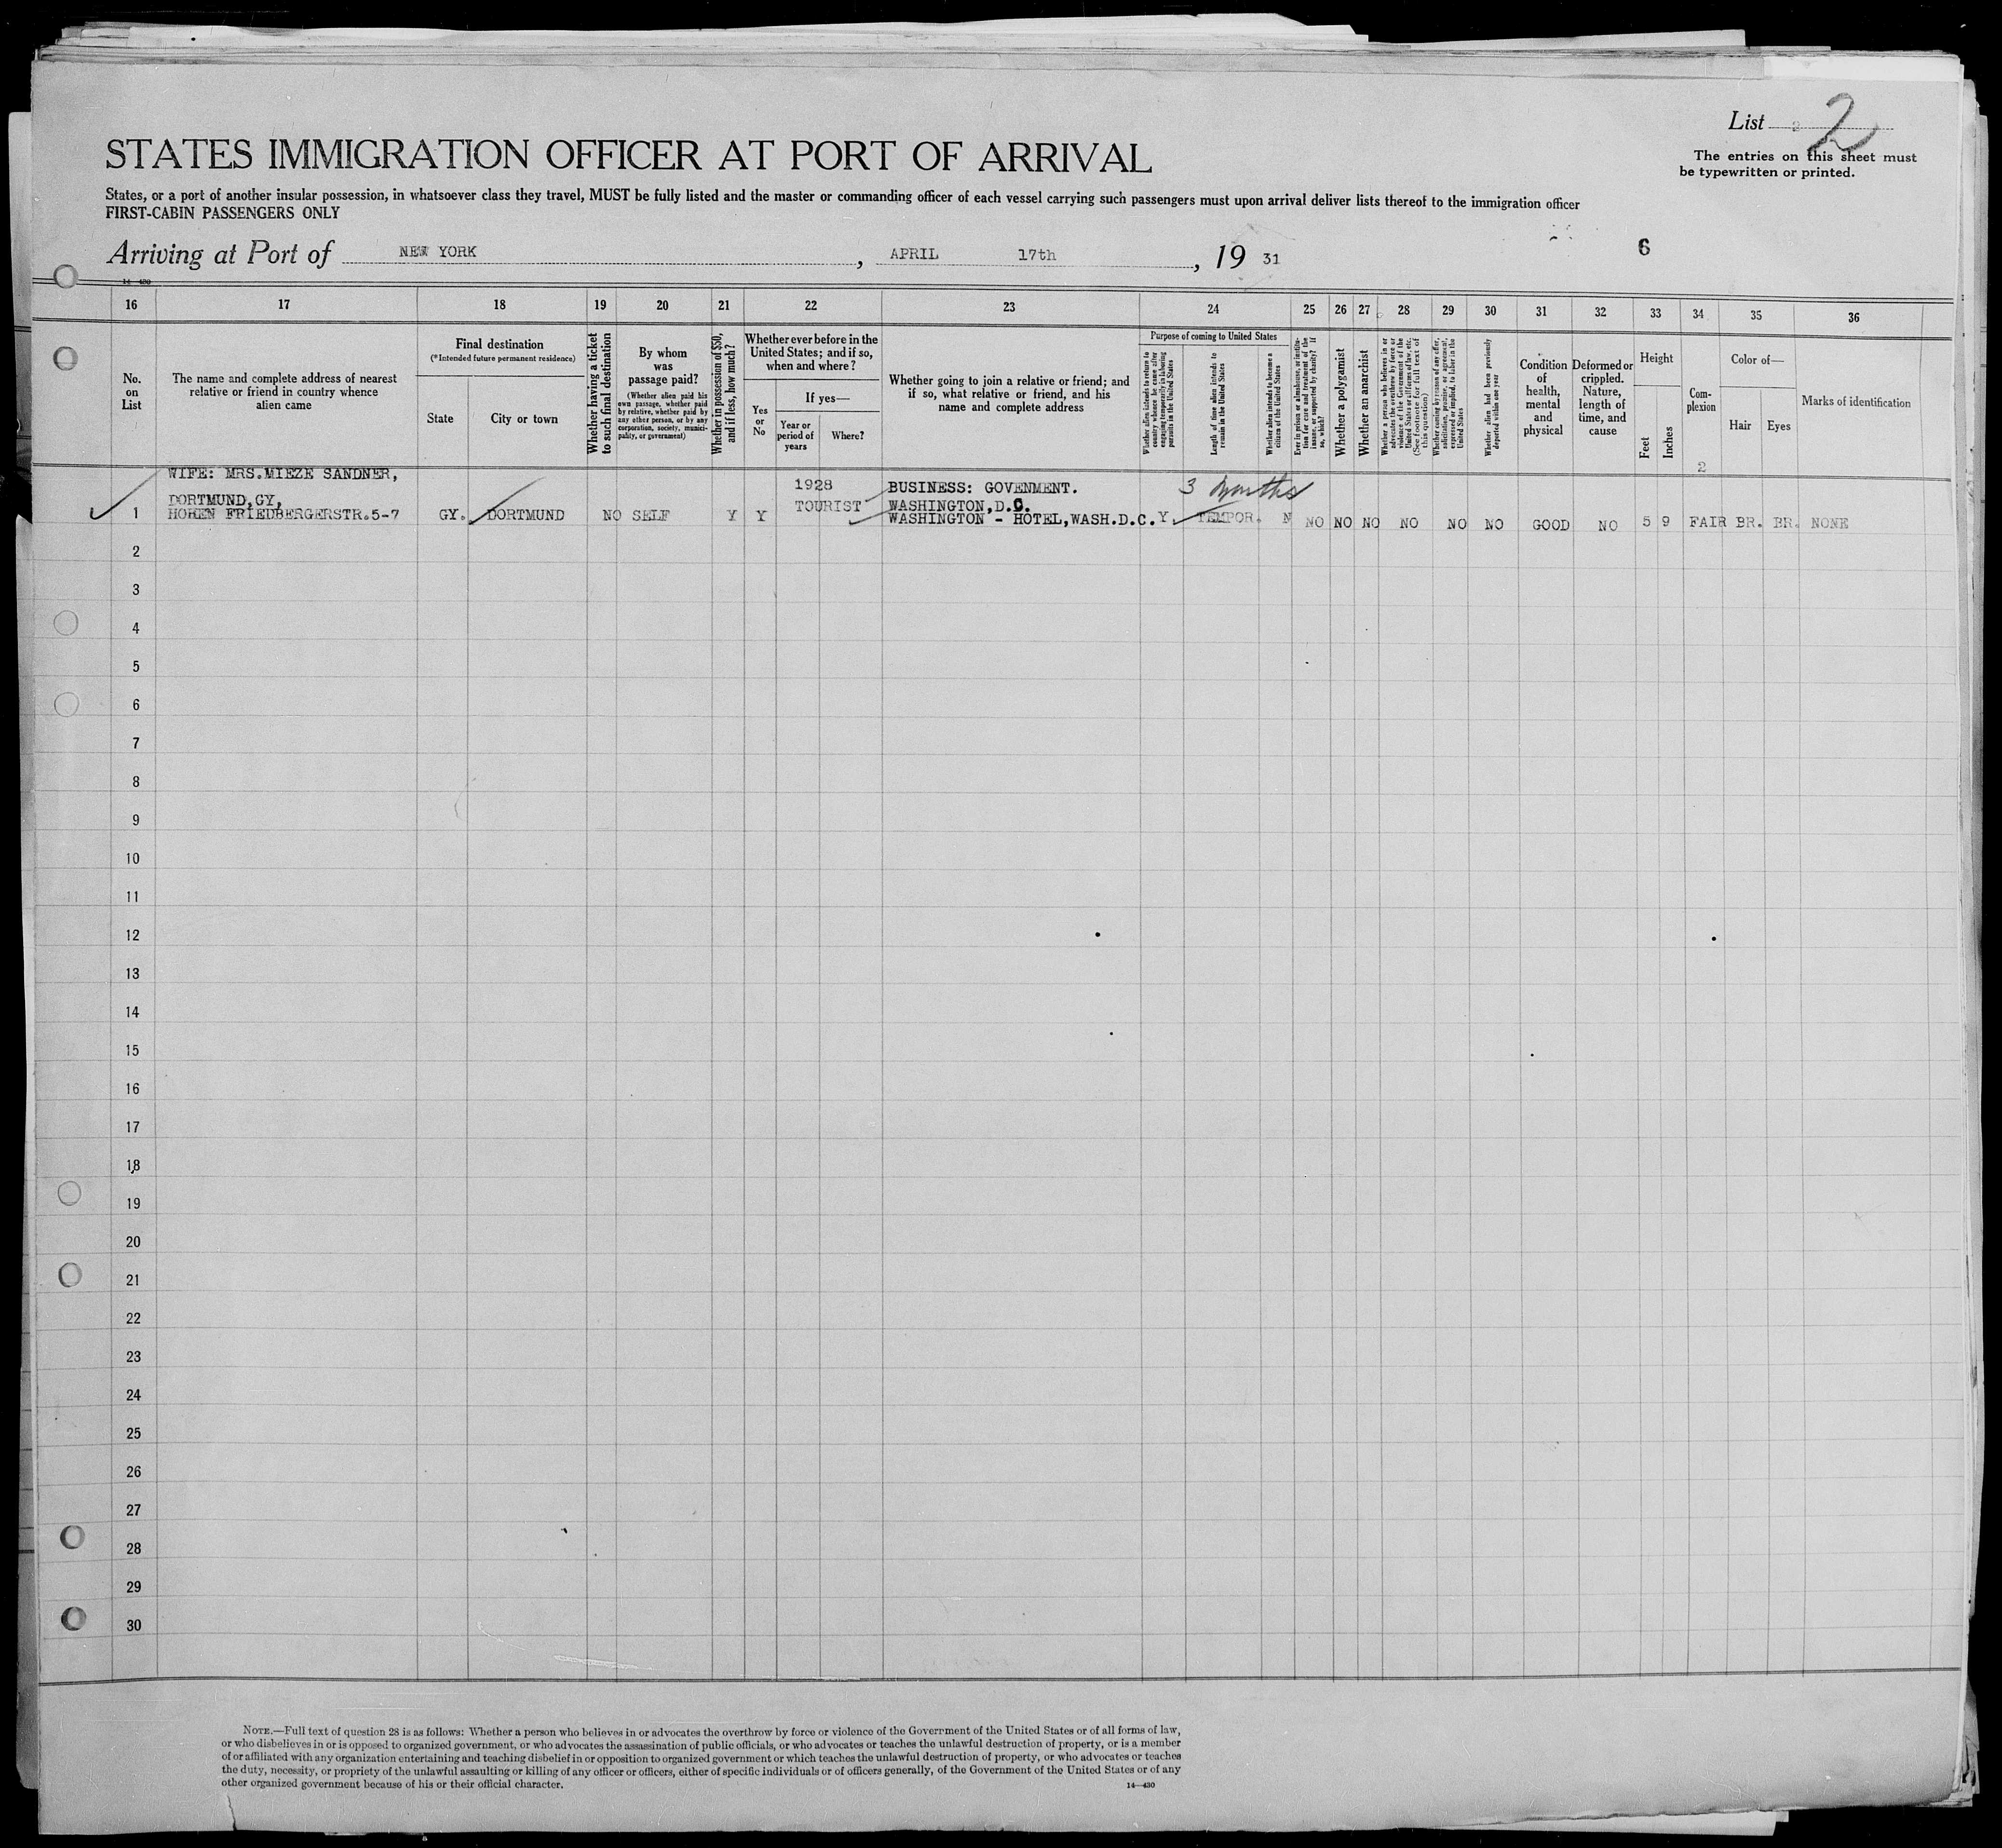 List 2
The entries on this sheet must
be typewritten or printed.
STATES IMMIGRATION OFFICER AT PORT OF ARRIVAL
States, or a port of another insular possession, in whatsoever class they travel, MUST be fully listed and the master or commanding officer of each vessel carrying such passengers must upon arrival deliver lists thereof to the immigration officer
FIRST-CABIN PASSENGERS ONLY
Arriving at Port of NEW YORK, APRIL 17th, 19 31
6
14—430
16 17 18 19 20 21 22 23 24 25 26 27 28 29 30 31 32 33 34 35 36
No.
on
List
The name and complete address of nearest
relative or friend in country whence
alien came
Final destination
(*Intended future permanent residence)
State
City or town
Whether having a ticket
to such final destination
By whom
was
passage paid?
(Whether alien paid his
own passage, whether paid
by relative, whether paid by
any other person, or by any
corporation, society, munici-
pality, or government)
Whether in possession of $50,
and if less, how much?
Whether ever before in the
United States; and if so,
when and where?
Yes
or
No
If yes—
Year or
period of
years
Where?
Whether going to join a relative or friend; and
if so, what relative or friend, and his
name and complete address
Purpose of coming to United States
Whether alien intends to return to
country whence he came after
engaging temporarily in laboring
pursuits in the United States
Length of time alien intends to
remain in the United States
Whether alien intends to become a
citizen of the United States
Ever in prison or almshouse, or institu-
tion for care and treatment of the
insane, or supported by charity? If
so, which?
Whether a polygamist
Whether an anarchist
Whether a person who believes in or
advocates the overthrow by force or
violence of the Government of the
United States or all forms of law, etc.
(See footnote for full text of
this question)
Whether coming by reason of any offer,
solicitation, promise, or agreement,
expressed or implied, to labor in the
United States
Whether alien had been previously
deported within one year
Condition
of
health,
mental
and
physical
Deformed or
crippled.
Nature,
length of
time, and
cause
Height
Feet
Inches
Com-
plexion
Color of—
Hair
Eyes
Marks of identification
2
WIFE: MRS.MIEZE SANDNER,
DORTMUND,GY,
1 HOHEN FRIEDBERGERSTR.5-7 GY. DORTMUND NO SELF Y Y
1928
TOURIST
BUSINESS: GOVENMENT.
WASHINGTON,D.C.
WASHINGTON - HOTEL,WASH.D.C.
3 months
Y. TEMPOR. N NO NO NO NO NO NO GOOD NO 5 9 FAIR BR. BR. NONE
2
3
4
5
6
7
8
9
10
11
12
13
14
15
16
17
18
19
20
21
22
23
24
25
26
27
28
29
30
NOTE.—Full text of question 28 is as follows: Whether a person who believes in or advocates the overthrow by force or violence of the Government of the United States or of all forms of law,
or who disbelieves in or is opposed to organized government, or who advocates the assassination of public officials, or who advocates or teaches the unlawful destruction of property, or is a member
of or affiliated with any organization entertaining and teaching disbelief in or opposition to organized government or which teaches the unlawful destruction of property, or who advocates or teaches
the duty, necessity, or propriety of the unlawful assaulting or killing of any officer or officers, either of specific individuals or of officers generally, of the Government of the United States or of any
other organized government because of his or their official character.
14—430